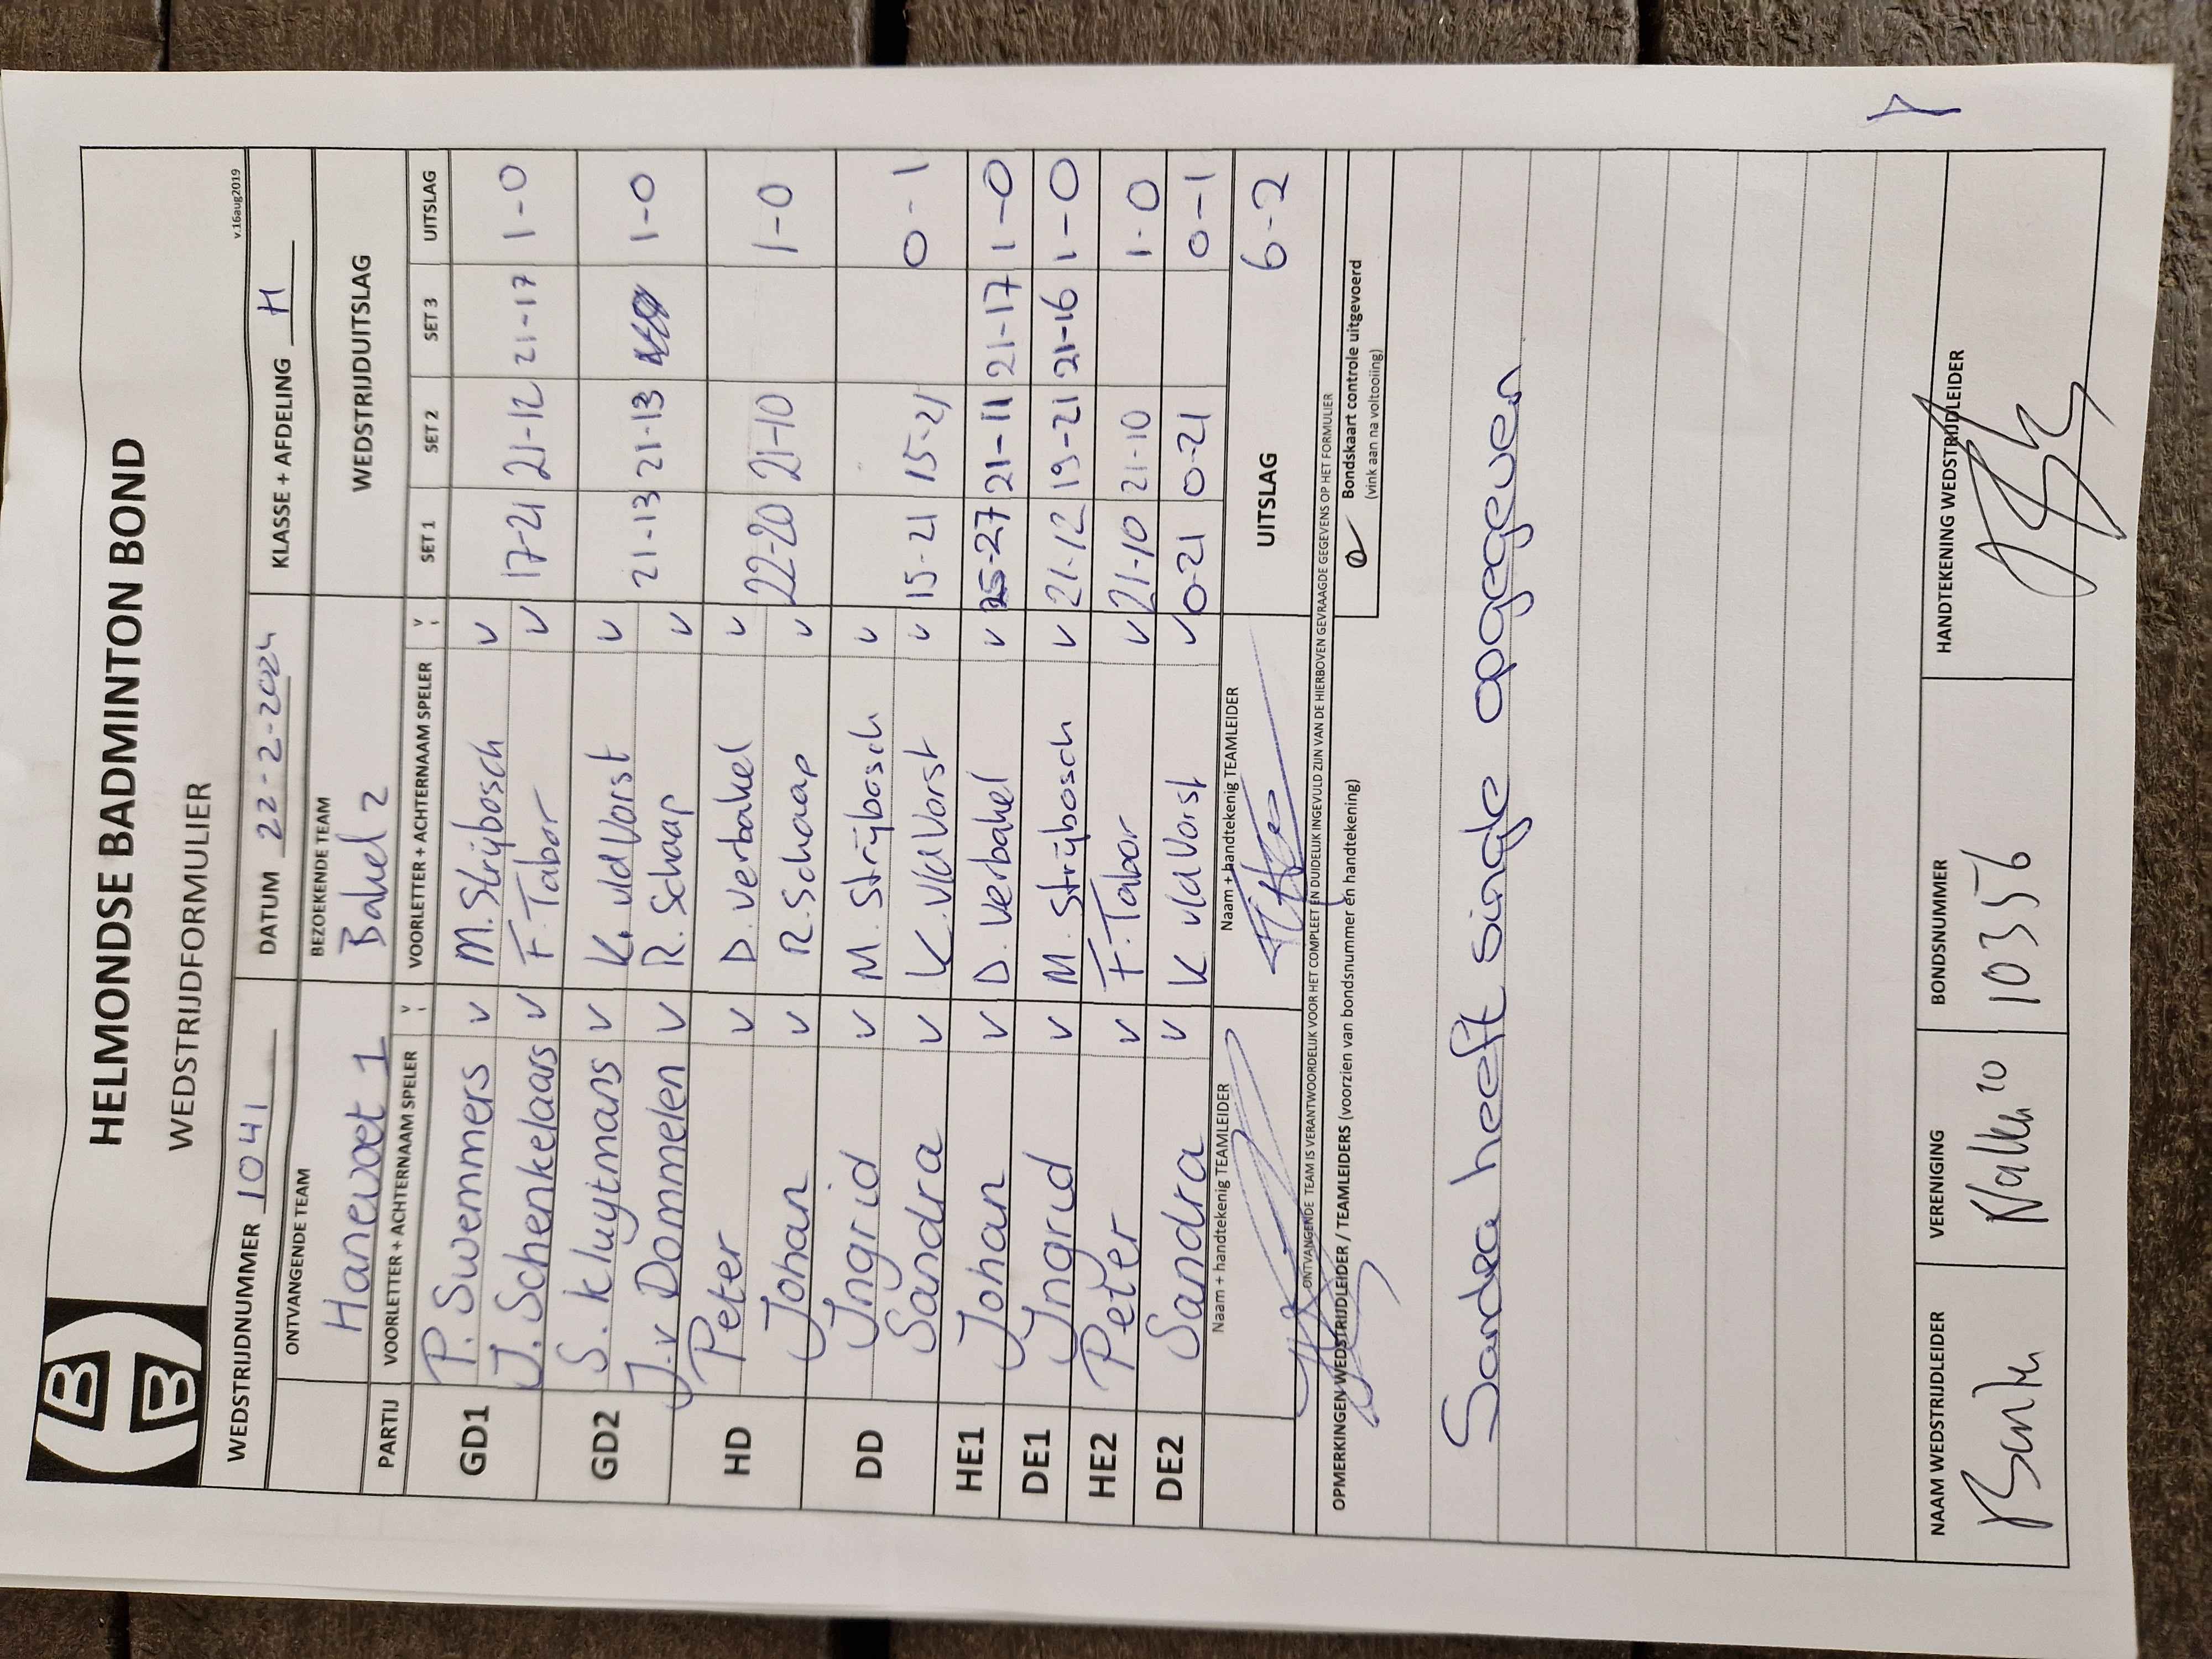 HELMONDSE BADMINTON BOND
WEDSTRIJDFORMULIER
v.16aug2019
WEDSTRIJDNUMMER 1041 DATUM 22-2-2024 KLASSE + AFDELING H
ONTVANGENDE TEAM BEZOEKENDE TEAM WEDSTRIJDUITSLAG
Hanevoet 1 Bakel 2
PARTIJ VOORLETTER + ACHTERNAAM SPELER V VOORLETTER + ACHTERNAAM SPELER V SET 1 SET 2 SET 3 UITSLAG
GD1 P. Swemmers v M. Strijbosch v
J. Schenkelaars v F. Tabor v 17-21 21-12 21-17 1-0
GD2 S. Kluytmans v K. vldVorst v
J. v Dommelen v R. Schaap v 21-13 21-13 1-0
HD Peter v D. Verbakel v
Johan v R. Schaap v 22-20 21-10 1-0
DD Ingrid v M. Strijbosch v
Sandra v K. vldVorst v 15-21 15-21 0-1
HE1 Johan v D. Verbakel v 25-27 21-11 21-17 1-0
DE1 Ingrid v M. Strijbosch v 21-12 19-21 21-16 1-0
HE2 Peter v F. Tabor v 21-10 21-10 1-0
DE2 Sandra v K. vldVorst v 0-21 0-21 0-1
Naam + handtekenig TEAMLEIDER Naam + handtekenig TEAMLEIDER UITSLAG 6-2
ONTVANGENDE TEAM IS VERANTWOORDELIJK VOOR HET COMPLEET EN DUIDELIJK INGEVULD ZIJN VAN DE HIERBOVEN GEVRAAGDE GEGEVENS OP HET FORMULIER
OPMERKINGEN WEDSTRIJDLEIDER / TEAMLEIDERS (voorzien van bondsnummer én handtekening) Bondskaart controle uitgevoerd
(vink aan na voltooiing)
Sandra heeft single opgegeven
NAAM WEDSTRIJDLEIDER VERENIGING BONDSNUMMER HANDTEKENING WEDSTRIJDLEIDER
10356